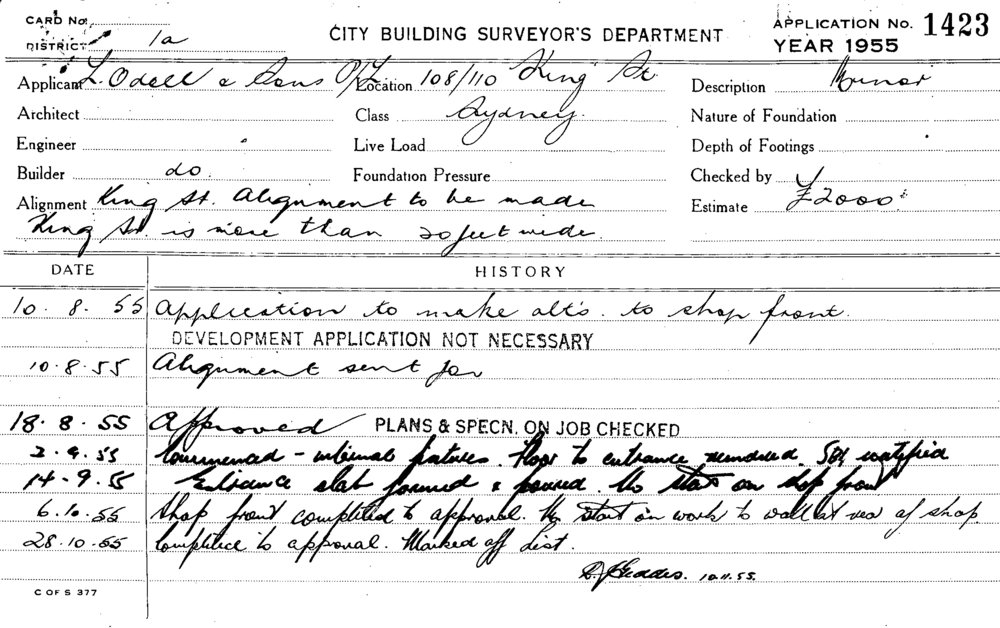 CARD No.
DISTRICT 1a
CITY BUILDING SURVEYOR'S DEPARTMENT
APPLICATION No. 1423
YEAR 1955
Applicant L. Odell & Sons P/L Location 108/110 King St Description Minor
Architect Class Sydney. Nature of Foundation
Engineer Live Load Depth of Footings
Builder do. Foundation Pressure Checked by
Alignment King St. Alignment to be made Estimate £2000
King St. is more than 20 feet wide.
DATE HISTORY
10. 8. 55 Application to make alt's. to shop front.
DEVELOPMENT APPLICATION NOT NECESSARY
10.8.55 Alignment sent for
18. 8. 55 Approved PLANS & SPECN. ON JOB CHECKED
2.9.55 Commenced - internal fixtures. Floor to entrance removed.
14-9.55 Entrance slab formed & poured. No start on shop front
6.10.55 Shop front completed to approval. No start on work to wall at rear of shop.
28.10.55 Complete to approval. Marked off list.
10.11.55.
C OF S 377